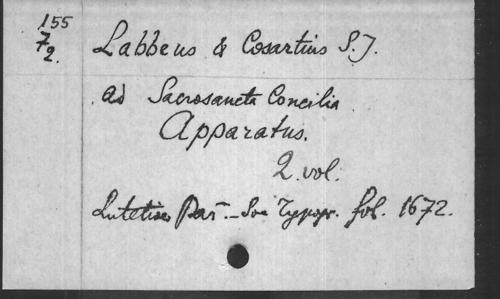 155
7
2.
Labbeus & Cosartius S.J.
ad Sacrosancta Concilia
Apparatus.
2. vol.
Lutetiae Par. - Soc Typogr. fol. 1672.